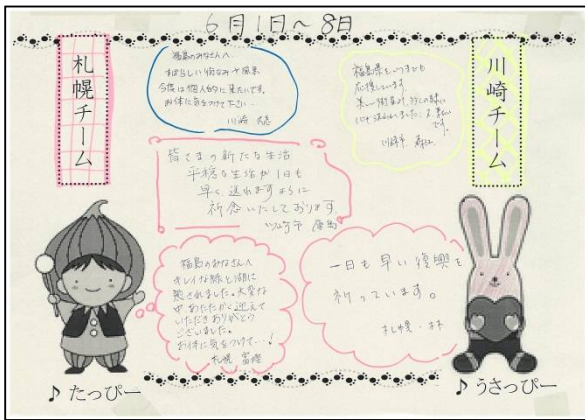 6月1日~8日
札幌チーム
川崎チーム
福島のみなさんへ
すばらしい街なみや風景
今度は個人的に来たいです。
お体に気をつけて下さい…
川崎
福島県をいつまでも
応援しています。
美しい街並み、
川崎市 森江
皆さまの新たな生活
平穏な生活が1日も
早く送れますように
祈念いたしております
川崎市
福島のみなさんへ
キレイな緑と湖に
癒されました。大変な
中あたたかく迎えて
いただきありがとう
ございました。
お体に気をつけて…!
札幌 富樫
一日も早い復興を
祈っています。
札幌・林
♪たっぴー
♪うさっぴー